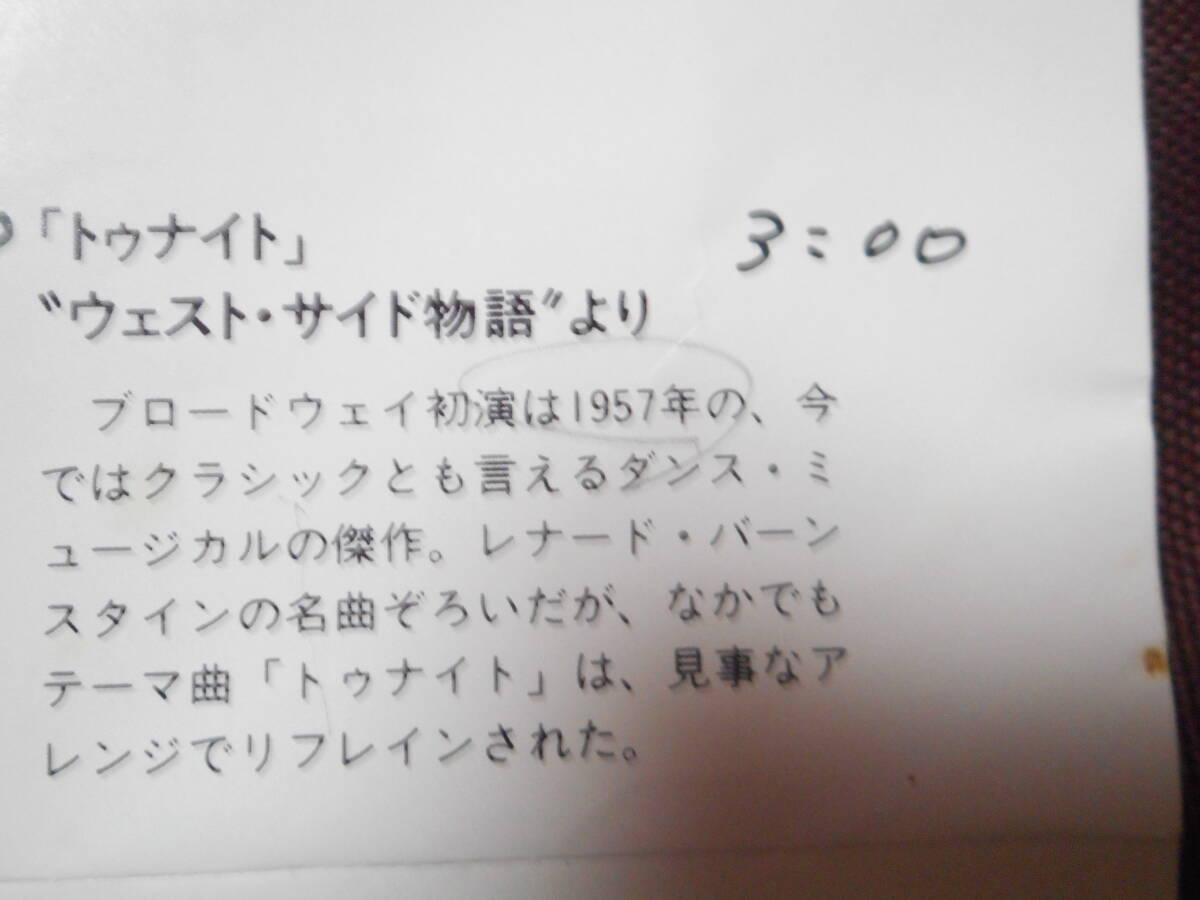 「トゥナイト」 3:00
〝ウェスト・サイド物語〟より
ブロードウェイ初演は1957年の、今
ではクラシックとも言えるダンス・ミ
ュージカルの傑作。レナード・バーン
スタインの名曲ぞろいだが、なかでも
テーマ曲「トゥナイト」は、見事なア
レンジでリフレインされた。